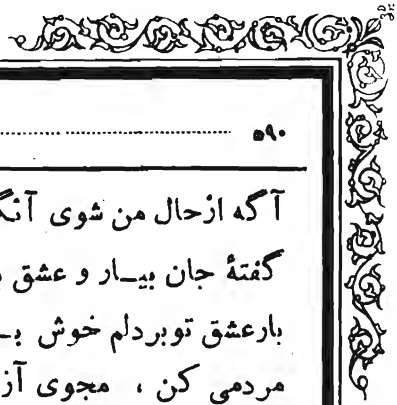 ۵۹۰
آگه ازحال من شوی
گفتهٔ جان بیـار و عشق
بارعشق توبردلم خوش
مردمی کن ، مجوی